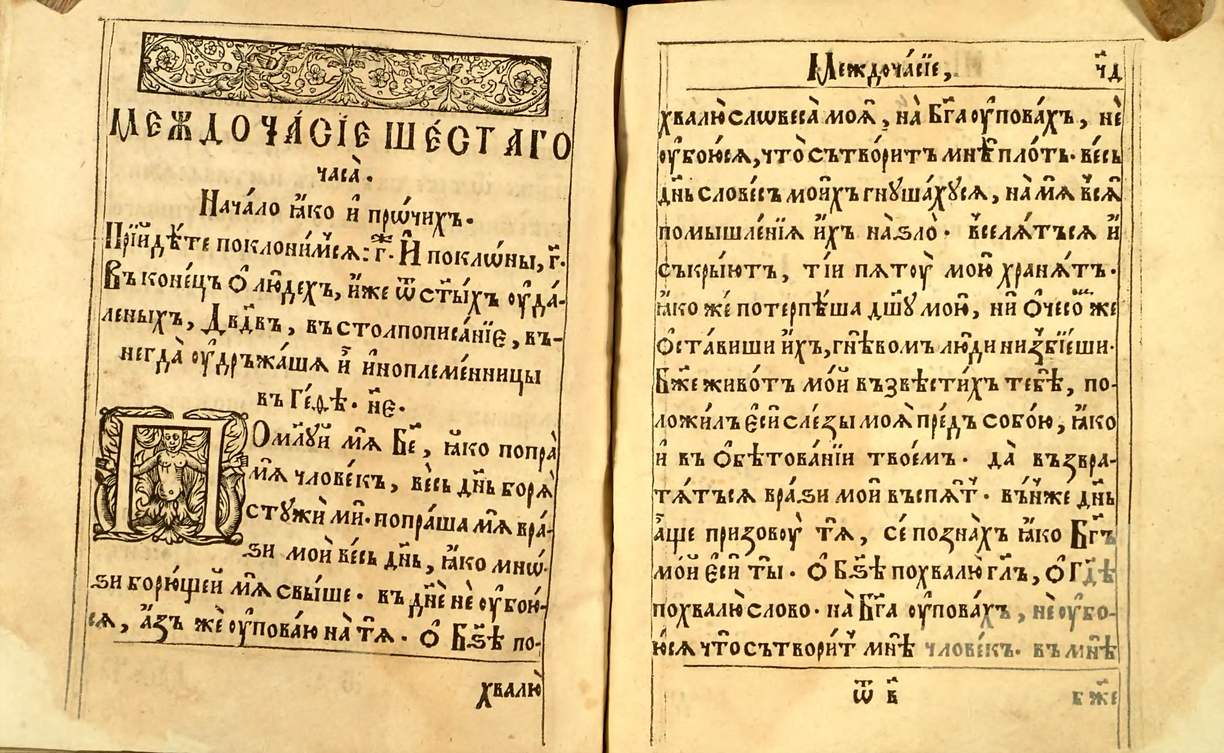 МЕЖДОЧА́СЇЕ ШЕ́СТАГО
часа̀.
Нача́ло ꙗ҆́ко и҆ прѡ́чихъ.
Прїйдѣ́те поклони́мсѧ: г҃. И҆ поклѡ́ны, г҃.
Въ коне́цъ Ѻ҆ лю́дехъ, и҆́же ѿ ст҃ы́хъ ᲂу҆да́-
леныхъ, Дв҃дв, въ столпописа́нїе, въ-
негда̀ ᲂу҆дръжа́шѧ и҆̀ и҆ноплеме́нницы
въ Ге́ѳѣ. н҃е.
Поми́лꙋй мѧ̀ Бж҃е, ꙗ҆́ко попра̀
мѧ̀ человѣ́къ, ве́сь дн҃ь борѧ̀
стꙋжи́ ми. попра́ша мѧ̀ вра-
ѕѝ моѝ ве́сь дн҃ь, ꙗ҆́ко мнѡ́-
ѕи борю́щей мѧ̀ свы́ше. въ дн҃е не ᲂу҆бою́-
сѧ, а҆́зъ же ᲂу҆пова́ю на тѧ̀. Ѻ҆ Бз҃ѣ по-
хвалю̀
Междоча́сїе, ч҃д
хвалю̀ словеса̀ моѧ̀, на̀ Бг҃а ᲂу҆пова́хъ, нѐ
ᲂу҆бою́сѧ, что̀ сътвори́тъ мнѣ̀ пло́ть. ве́сь
дн҃ь слове́съ мои́хъ гнꙋша́хꙋсѧ, на̀ мѧ всѧ̀
помышле́нїѧ и҆́хъ на̀ ѕло̀. вселѧ́тъсѧ и҆
съкры́ютъ, ті́и пѧтоу̀ мою̀ хранѧ́тъ.
ꙗ҆́ко же потерпѣ́ша дш҃ꙋ мою̀, ни҆ ѻ҆ чесо́ же
ѻ҆ста́виши и҆́хъ, гнѣ́вомъ лю́ди низ̾бїе́ши.
Бж҃е живо́тъ мо́й възвѣсти́хъ тебѣ̀, по-
ложи́лъ е҆сѝ сле́зы моѧ̀ пре́дъ собо́ю, ꙗ҆́ко
и҆ въ ѻ҆бѣтова́нїи твое́мъ. да̀ възвра-
тѧ́тъсѧ вра́ѕи моѝ въспѧ́ть. во́ньже дн҃ь
а҆́ще призовоу̀ тѧ̀, се́ позна́хъ ꙗ҆́ко Бг҃ъ
мо́й е҆сѝ ты̀. Ѻ҆ Бз҃ѣ похвалю̀ гл҃ъ, ѻ҆ Гд҃ѣ
похвалю̀ сло́во. на̀ Бг҃а ᲂу҆пова́хъ, не ᲂу҆бо-
ю́сѧ что̀ сътвори́т мнѣ̀ человѣ́къ. въ мнѣ̀
ѿ в҃ бж҃е